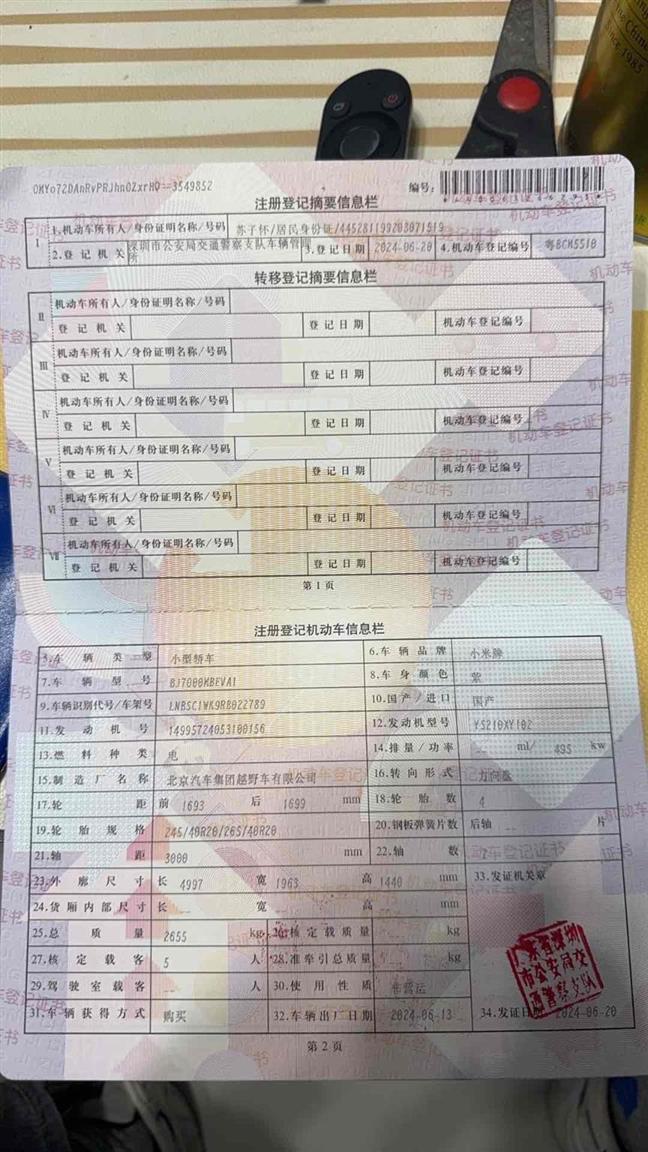 since 1985
OMYo72DAnRvPRJhnOZxrHQ==3549852
编号:
注册登记摘要信息栏
I 1.机动车所有人/身份证明名称/号码 苏子怀/居民身份证/445281199203071519
2.登记机关 深圳市公安局交通警察支队车辆管理所 3.登记日期 2024-06-20 4.机动车登记编号 粤BCM5510
转移登记摘要信息栏
II 机动车所有人/身份证明名称/号码
登记机关 登记日期 机动车登记编号
III 机动车所有人/身份证明名称/号码
登记机关 登记日期 机动车登记编号
IV 机动车所有人/身份证明名称/号码
登记机关 登记日期 机动车登记编号
V 机动车所有人/身份证明名称/号码
登记机关 登记日期 机动车登记编号
VI 机动车所有人/身份证明名称/号码
登记机关 登记日期 机动车登记编号
VII 机动车所有人/身份证明名称/号码
登记机关 登记日期 机动车登记编号
第1页
注册登记机动车信息栏
5.车辆类型 小型轿车 6.车辆品牌 小米牌
7.车辆型号 BJ7000MBEVA1 8.车身颜色 紫
9.车辆识别代号/车架号 LNBSC1WK9RB022789 10.国产/进口 国产
11.发动机号 14995724053100156 12.发动机型号 YS210XY102
13.燃料种类 电 14.排量/功率 ml/ 495 kw
15.制造厂名称 北京汽车集团越野车有限公司 16.转向形式 方向盘
17.轮距 前 1693 后 1699 mm 18.轮胎数 4
19.轮胎规格 245/40R20/265/40R20 20.钢板弹簧片数 后轴 片
21.轴距 3000 mm 22.轴数 2
23.外廓尺寸 长 4997 宽 1963 高 1440 mm 33.发证机关章
24.货厢内部尺寸 长 宽 高 mm
25.总质量 2655 kg 26.核定载质量 kg
27.核定载客 5 人 28.准牵引总质量 kg
29.驾驶室载客 人 30.使用性质 非营运
31.车辆获得方式 购买 32.车辆出厂日期 2024-06-13 34.发证日期 2024-06-20
广东省深圳市公安局交通警察支队
第2页